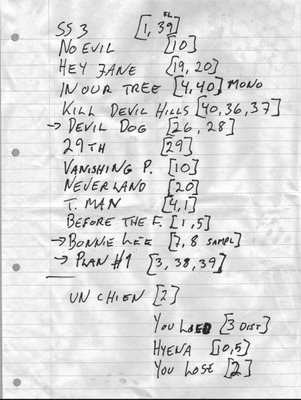 FL
SS 3 [1, 39]
NO EVIL [10]
HEY JANE [19, 20]
IN OUR TREE [4, 40] MONO
KILL DEVIL HILLS [40, 36, 37]
→ DEVIL DOG [26, 28]
29TH [29]
VANISHING P. [10]
NEVERLAND [20]
T. MAN [4, 1]
BEFORE THE F. [1, 5]
→ BONNIE LEE [7, 8 SAMPL]
→ PLAN #1 [3, 38, 39]
UN CHIEN [2]
YOU [3 DIST]
HYENA [10, 5]
YOU LOSE [2]